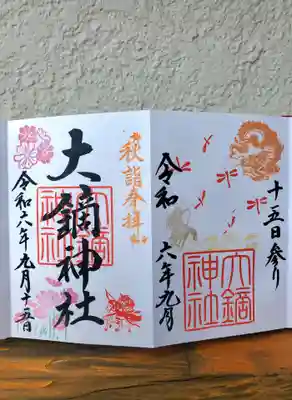 十五日参り
大鏑
神社
令和
六年九月
秋詣奉拝
大鏑神社
令和六年九月十五日